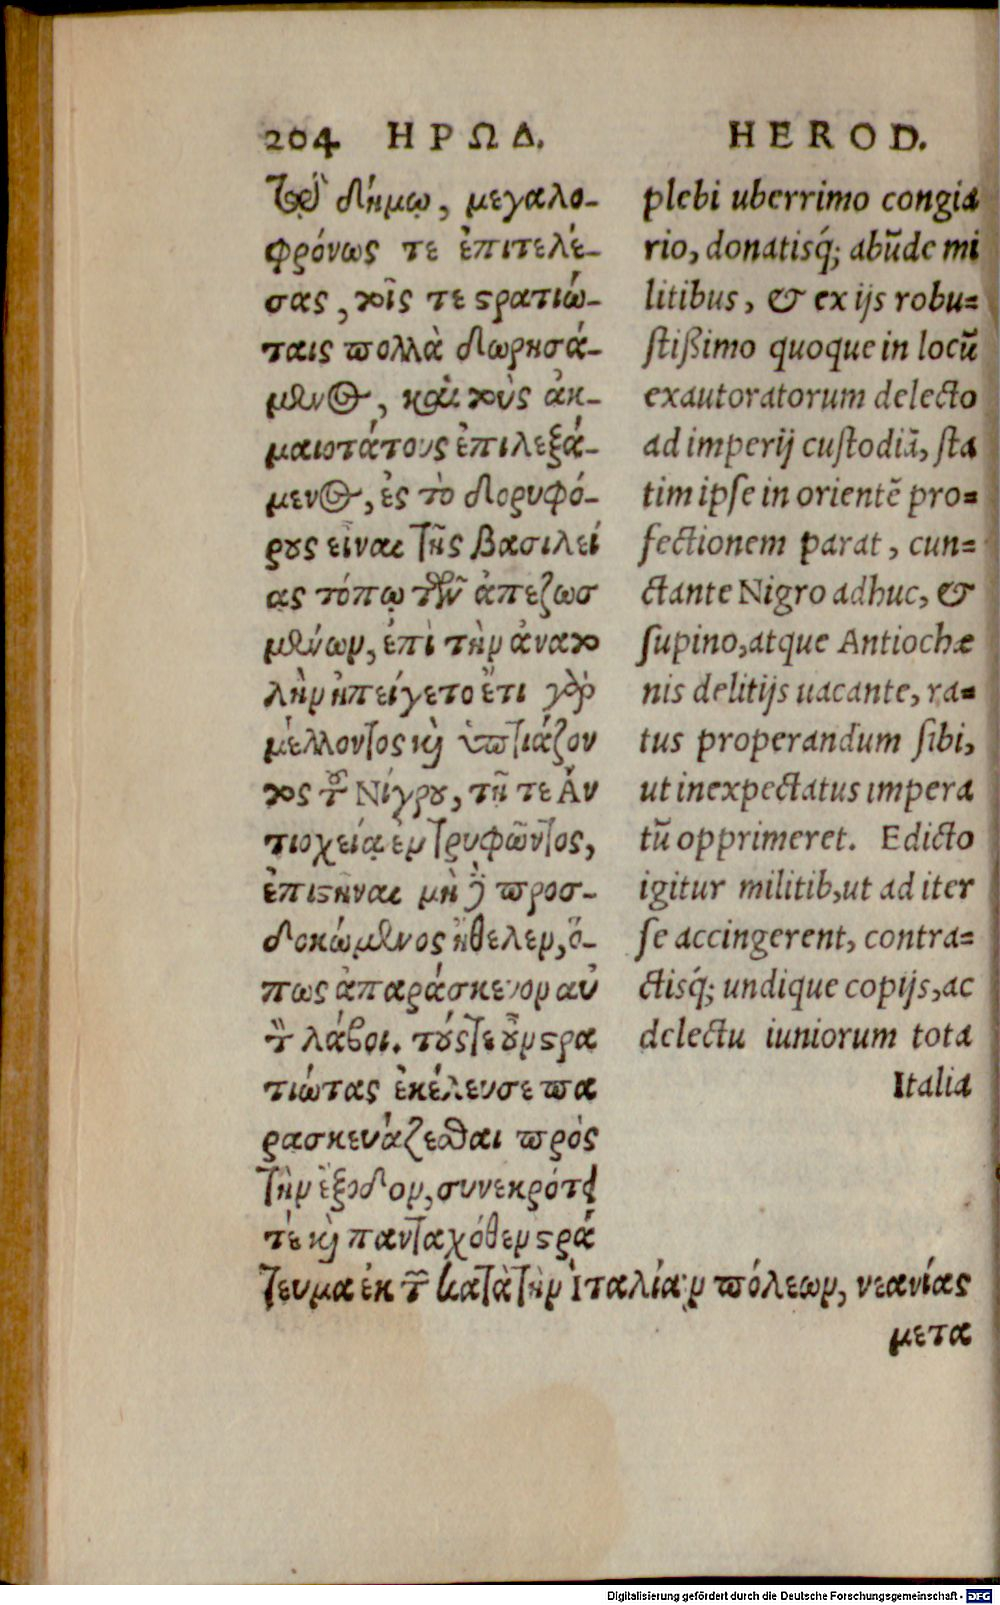 204 ΗΡΩΔ.
τῷ δήμῳ, μεγαλο-
φρόνως τε ἐπιτελέ-
σας, τοῖς τε στρατιώ-
ταις πολλὰ δωρησά-
μενος, καὶ τοὺς ἀκ-
μαιοτάτους ἐπιλεξά-
μενος, ἐς τὸ δορυφό-
ρους εἶναι τῆς βασιλεί
ας τόπῳ τῶν ἀπεζωσ
μένων, ἐπὶ τὴν ἀνατο
λὴν ἠπείγετο ἔτι γὰρ
μέλλοντος καὶ ὑπτιάζον
τος τοῦ Νίγρου, τῇ τε Ἀν
τιοχείᾳ ἐν τρυφῶντος,
ἐπιστῆναι μὴ δὲ προσ-
δοκώμενος ἤθελεν, ὅ-
πως ἀπαράσκευον αὐ
τὸν λάβοι. τούς τε οὖν στρα
τιώτας ἐκέλευσε πα
ρασκευάζεσθαι πρὸς
τὴν ἔξοδον, συνεκρότει
τὲ καὶ πανταχόθεν στρά
τευμα ἐκ τῶν κατὰ τὴν Ἰταλίαν πόλεων, νεανίας
μετα
HEROD.
plebi uberrimo congia
rio, donatisq́; abũde mi
litibus, & ex ijs robu=
stißimo quoque in locũ
exautoratorum delecto
ad imperij custodiã, sta
tim ipse in orientẽ pro=
fectionem parat, cun=
ctante Nigro adhuc, &
supino, atque Antiochæ
nis delitijs uacante, ra=
tus properandum sibi,
ut inexpectatus impera
tũ opprimeret. Edicto
igitur militib, ut ad iter
se accingerent, contra=
ctisq́; undique copijs, ac
delectu iuniorum tota
Italia
Digitalisierung gefördert durch die Deutsche Forschungsgemeinschaft - DFG